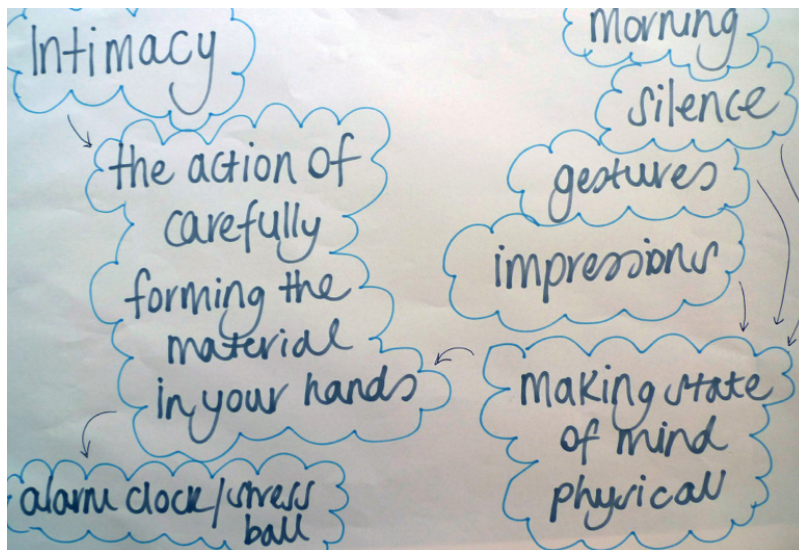 Intimacy
the action of
carefully
forming the
material
in your hands
alarm clock/stress
ball
Morning
silence
gestures
impressions
making state
of mind
physical